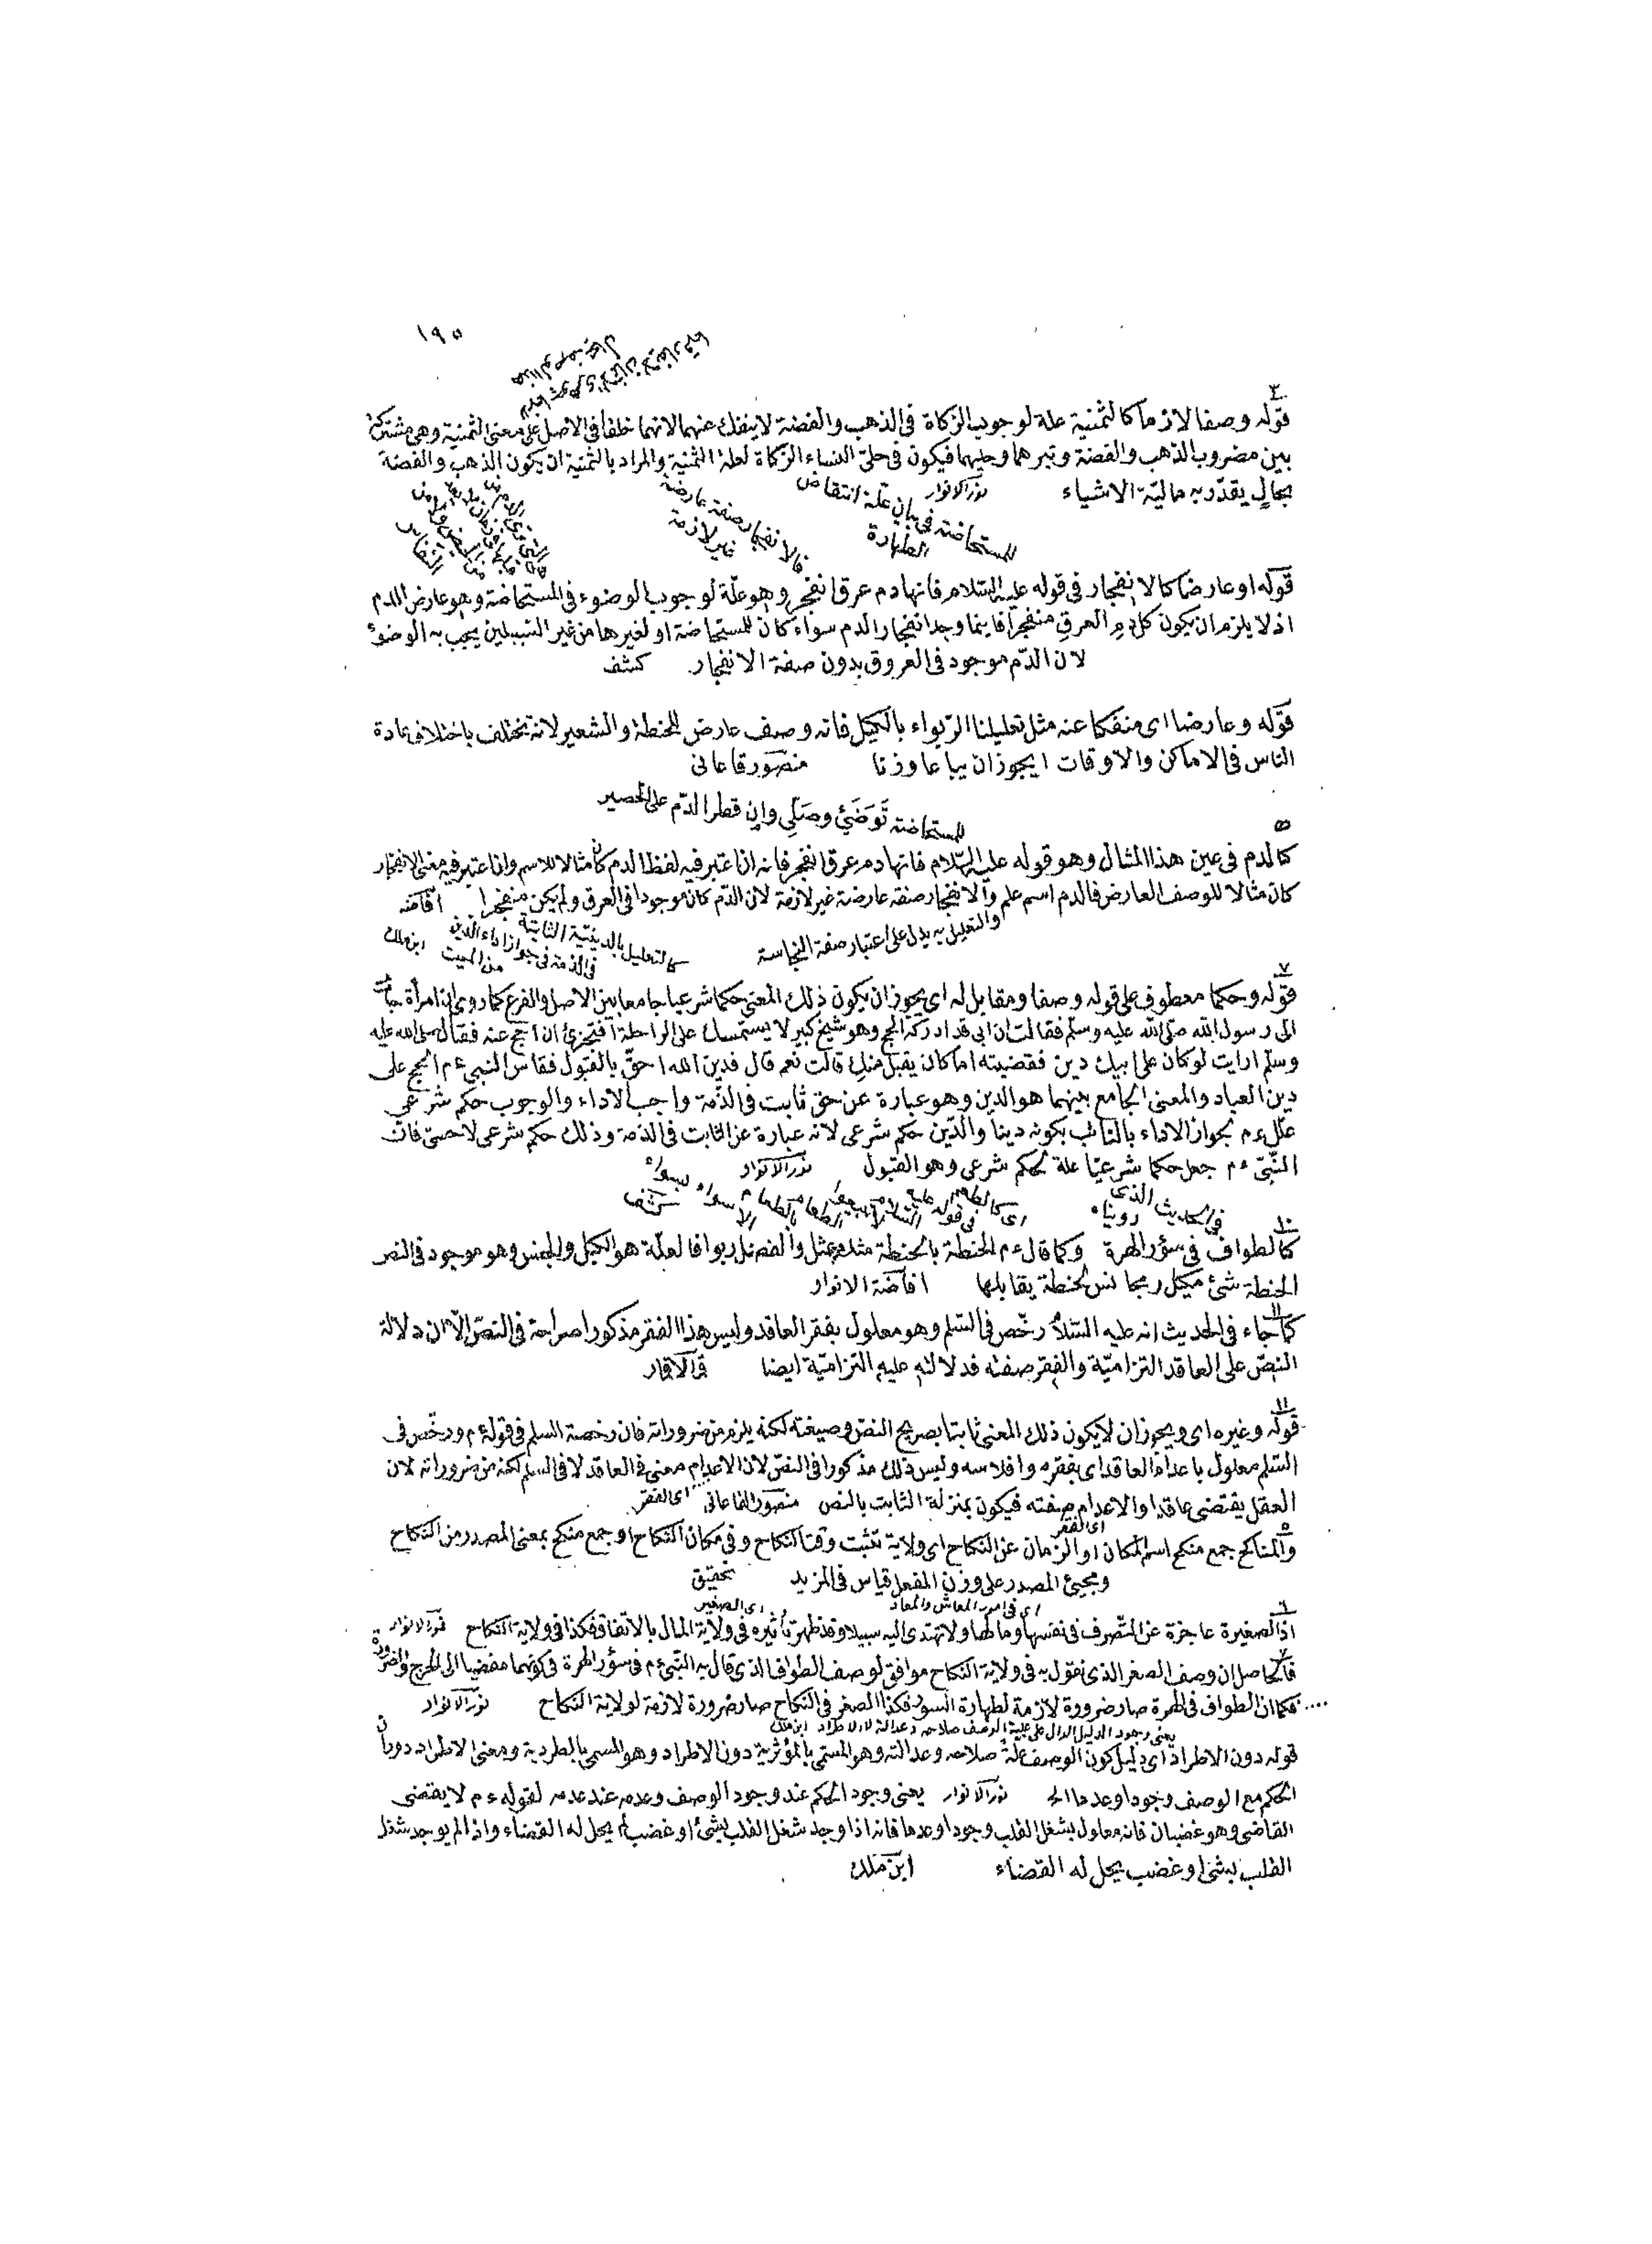 ١٩٥
٣
قوله وصفا لازما كالثمنية علة لوجوب الزكاة فى الذهب والفضة لا ينفك عنهما لانهما خلقا فى الاصل على معنى الثمنية وهى مشتركة
بين مضروب الذهب والفضة وتبرهما وحليهما فيكون فى حلىّ النساء الزكاة لعلة الثمنية والمراد بالثمنية ان يكون الذهب والفضة
بحالٍ يقدّر به ماليّة الاشياء نور الانوار
للمستحاضة فى بيان علة انتقاض
الطهارة
فالانفجار صفة عارضة
غير لازمة
قوله او عارضا كالانفجار فى قوله عليه السّلام فانها دم عرق انفجر وهو علّة لوجوب الوضوء فى المستحاضة وهو عارض للدم
اذ لا يلزم ان يكون كل دم العرق منفجرا فاينما وجد انفجار الدم سواء كان للمستحاضة او لغيرها من غير السبيلين يجب به الوضوء
لان الدّم موجود فى العروق بدون صفة الانفجار كشف
قوله وعارضا اى منفكا عنه مثل تعليلنا الرّبواء بالكيل فانه وصف عارض للحنطة والشعير لانه يختلف باختلاف عادة
الناس فى الاماكن والاوقات ايجوز ان يباعا وزنا منصور قاعانى
للمستحاضة تَوَضَئ وصَلّى وان قطر الدّم على الحصير
٥
كالدم فى عين هذا المثال وهو قوله عليه السّلام فانها دم عرق انفجر فانه اذا عتبر فيه لفظ الدم كان مثالا للاسم واذا عتبر فيه معنى الانفجار
كان مثالا للوصف العارض فالدم اسم علم والانفجار صفة عارضة غير لازمة لان الدّم كان موجودا فى العرق ولم يكن منفجرا افاضه
والتعليل به يدل على اعتبار صفة النجاسة
كالتعليل بالدينيّة الثابتة
فى الذمة فى جواز اداء الدين
من الميت ابن ملك
٧
قوله وحكما معطوف على قوله وصفا ومقابل له اى يجوز ان يكون ذلك المعنى حكما شرعيا جامعا بين الاصل والفرع كما روى ان امرأة جائت
الى رسول الله صلى الله عليه وسلم فقالت ان ابى قد ادركه الحج وهو شيخ كبير لا يستمسك على الراحلة أفتجزئ ان احج عنه فقال صلى الله عليه
وسلم ارايت لو كان على ابيك دين فقضيته اما كان يقبل منكِ قالت نعم قال فدين الله احقّ بالقبول فقاس النبى ءم الحج على
دين العباد والمعنى الجامع بينهما هو الدين وهو عبارة عن حق ثابت فى الذّمة واجب الاداء والوجوب حكم شرعى
علّل ءم بجواز الاداء بالنائب بكونه دينا والدّين حكم شرعى لانه عبارة عن الثابت فى الذمة وذلك حكم شرعى لا حسىّ فان
النّبىّ ءم جعل حكما شرعيّا علة لحكم شرعى وهو القبول نور الانوار
فى الحديث الذى
رويناه
١٠
كالطواف فى سؤر الهرة وكما قال ءم الحنطة بالحنطة مثلا بمثل والفضل ربوا فالعلّة هو الكيل والجنس وهو موجود فى النص
الحنطة شئ مكيل ومجانس لحنطة يقابلها افاضة الانوار
١١
كما جاء فى الحديث انه عليه السّلام رخّص فى السّلم وهو معلول بفقر العاقد وليس هذا الفقر مذكورا صراحة فى النصّ الاّ ان دلالة
النصّ على العاقد التزاميّة والفقر صفته فدلالته عليه التزاميّة ايضا قمر الاقمار
١١
قوله وغيره اى ويجوز ان لا يكون ذلك المعنى ثابتا بصريح النصّ وصيغته لكنه يلزم من ضروراته فان رخصة السلم فى قوله ءم ورخّص فى
السّلم معلول باعدام العاقد اى بفقره وافلاسه وليس ذلك مذكورا فى النصّ لان الاعدام معنى فى العاقد لا فى السلم لكنه من ضروراته لان
العقل يقتضى عاقدا والاعدام صفته فيكون بمنزلة الثابت بالنص منصور القاعانى اى الفقر
اى الفقر
٥
والمناكح جمع منكح اسم المكان او الزمان عن النكاح اى ولاية تثبت وقت النكاح وفى مكان النكاح او جمع منكح بمعنى المصدر من النكاح
ومجيئ المصدر على وزن المفعل قياس فى المزيد تحقيق
اى فى امور المعاش والمعاد اى الصغير
٦
اذ الصغيرة عاجزة عن التّصرف فى نفسها ومالها ولا تهتدى اليه سبيلا وقد ظهر تأثيره فى ولاية المال بالاتفاق فكذا فى ولاية النكاح نور الانوار
٧
فالحاصل ان وصف الصغر الذى نقول به فى ولاية النكاح موافق لوصف الطواف الذى قال به النّبىّ ءم فى سؤر الهرة فى كونهما مفضيا الى الحرج والضرورة
فكما ان الطواف فى الهرة صار ضرورة لازمة لطهارة السور فكذا الصغر فى النكاح صار ضرورة لازمة لولاية النكاح نور الانوار
يعنى وجود الدليل الدال على علية الوصف صلاحه وعدالته لا الاطراد ابن ملك
قوله دون الاطراد اى دليل كون الوصف علة صلاحه وعدالته وهو المسمّى بالمؤثرية دون الاطراد وهو المسمى بالطردية ومعنى الاطراد دوران
الحكم مع الوصف وجودا وعدما الخ نور الانوار يعنى وجود الحكم عند وجود الوصف وعدمه عند عدمه لقوله ءم لا يقضى
القاضى وهو غضبان فانه معلول بشغل القلب وجودا وعدما فانه اذا وجد شغل القلب بشئ او غضب لم يحل له القضاء واذا لم يوجد شغل
القلب بشئ او غضب يحل له القضاء ابن ملك